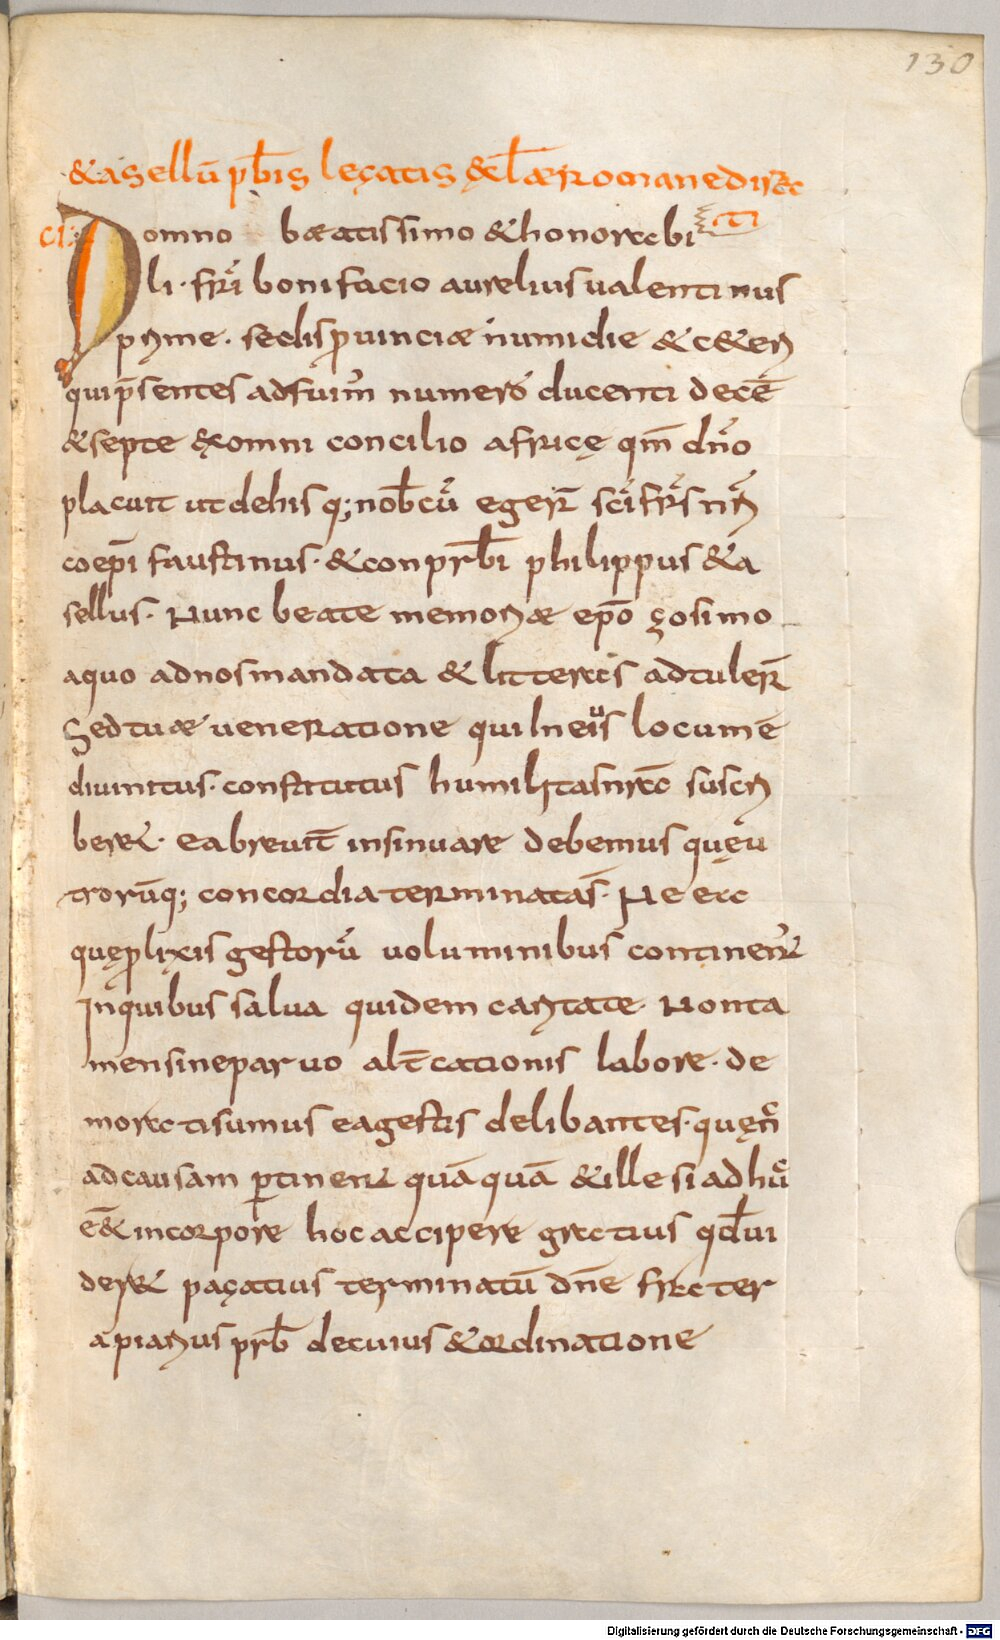 130
& asellū prb̄is leçatis ęcl̄æ romane direc
ti
CI Domno beatissimo & honorabi
li · fr̄i bonifacio aurelius ualentinus
prime · sedis prouinciæ numidie & c&eri
qui p̄sentes adfuim̄ numero ducenti decē
& septe ex omni concilio africę qm̄ dn̄o
placuit ut de his q; nob̄cū egeȓ sc̄i fr̄s nr̄i
coep̄i faustinus · & conprb̄i philippus & a
sellus · Nunc beate memoriæ ep̄o çosimo
a quo ad nos mandata & litteras adtuler̄
Sed tuæ ueneratione qui in eius locum ē
diuinitus · constitutus humilitas nr̄a suscri
ber& · ea breuit̄ insinuare debemus quę u
trorūq; concordia terminata s̄ · Ne ea
quę prolixis gestorū uoluminibus continent̄
In quibus salua quidem caritate · Non ta
men sine paruo alt̄cationis labore · de
morati sumus ea gestis delibantes · quę nc̄
ad causam ptinent quā quā & ille si adhuc
ē& in corpore hoc acciperet gratius qd̄ ui
der& paçatius terminatū dn̄e frater
apiarius prb̄ de cuius & ordinatione
Digitalisierung gefördert durch die Deutsche Forschungsgemeinschaft - DFG